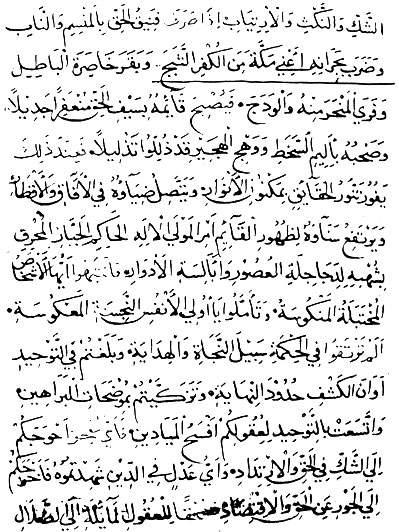 الشك والنكث والارتياب اذا صرف فنيق الحق بالمنسم والناب
وضرب بجرانه اعني مكة من الكفر الثبج وبقر خاصرة الباطل
وفري المنحر منه والودج فيصبح قائمه بسيف الحق منعفرا جديلا
وصحبه باليم السخط ووهج الهجير قد ذللوا تذليلا فعند ذلك
يفور تنور الحقائق بمكنون الانوار ويتصل ضياؤه في الافاق والاقطار
ويرتفع سناؤه لظهور القائم امر المولى الاله الحاكم الجبار المحرق
بشهبه لدجاجلة العصور وابالسة الادوار فانتبهوا ايها الاشخاص
المختبلة المنكوسة وتاملوا يا اولي الانفس النجسة المعكوسة
الم ترتقوا في الحكمة سبيل النجاة والهداية وبلغتم في التوحيد
اوان الكشف حدود النهاية وتزكيتم بموضحات البراهين
واتسعت بالتوحيد لعقولكم افسح الميادين فاي عجز احوجكم
الى الشك في الحق والارتداد واي عدل في الدين شهدتموه فاحوجكم
الى الجور عن الحق للعقول المائلة الى الضلال